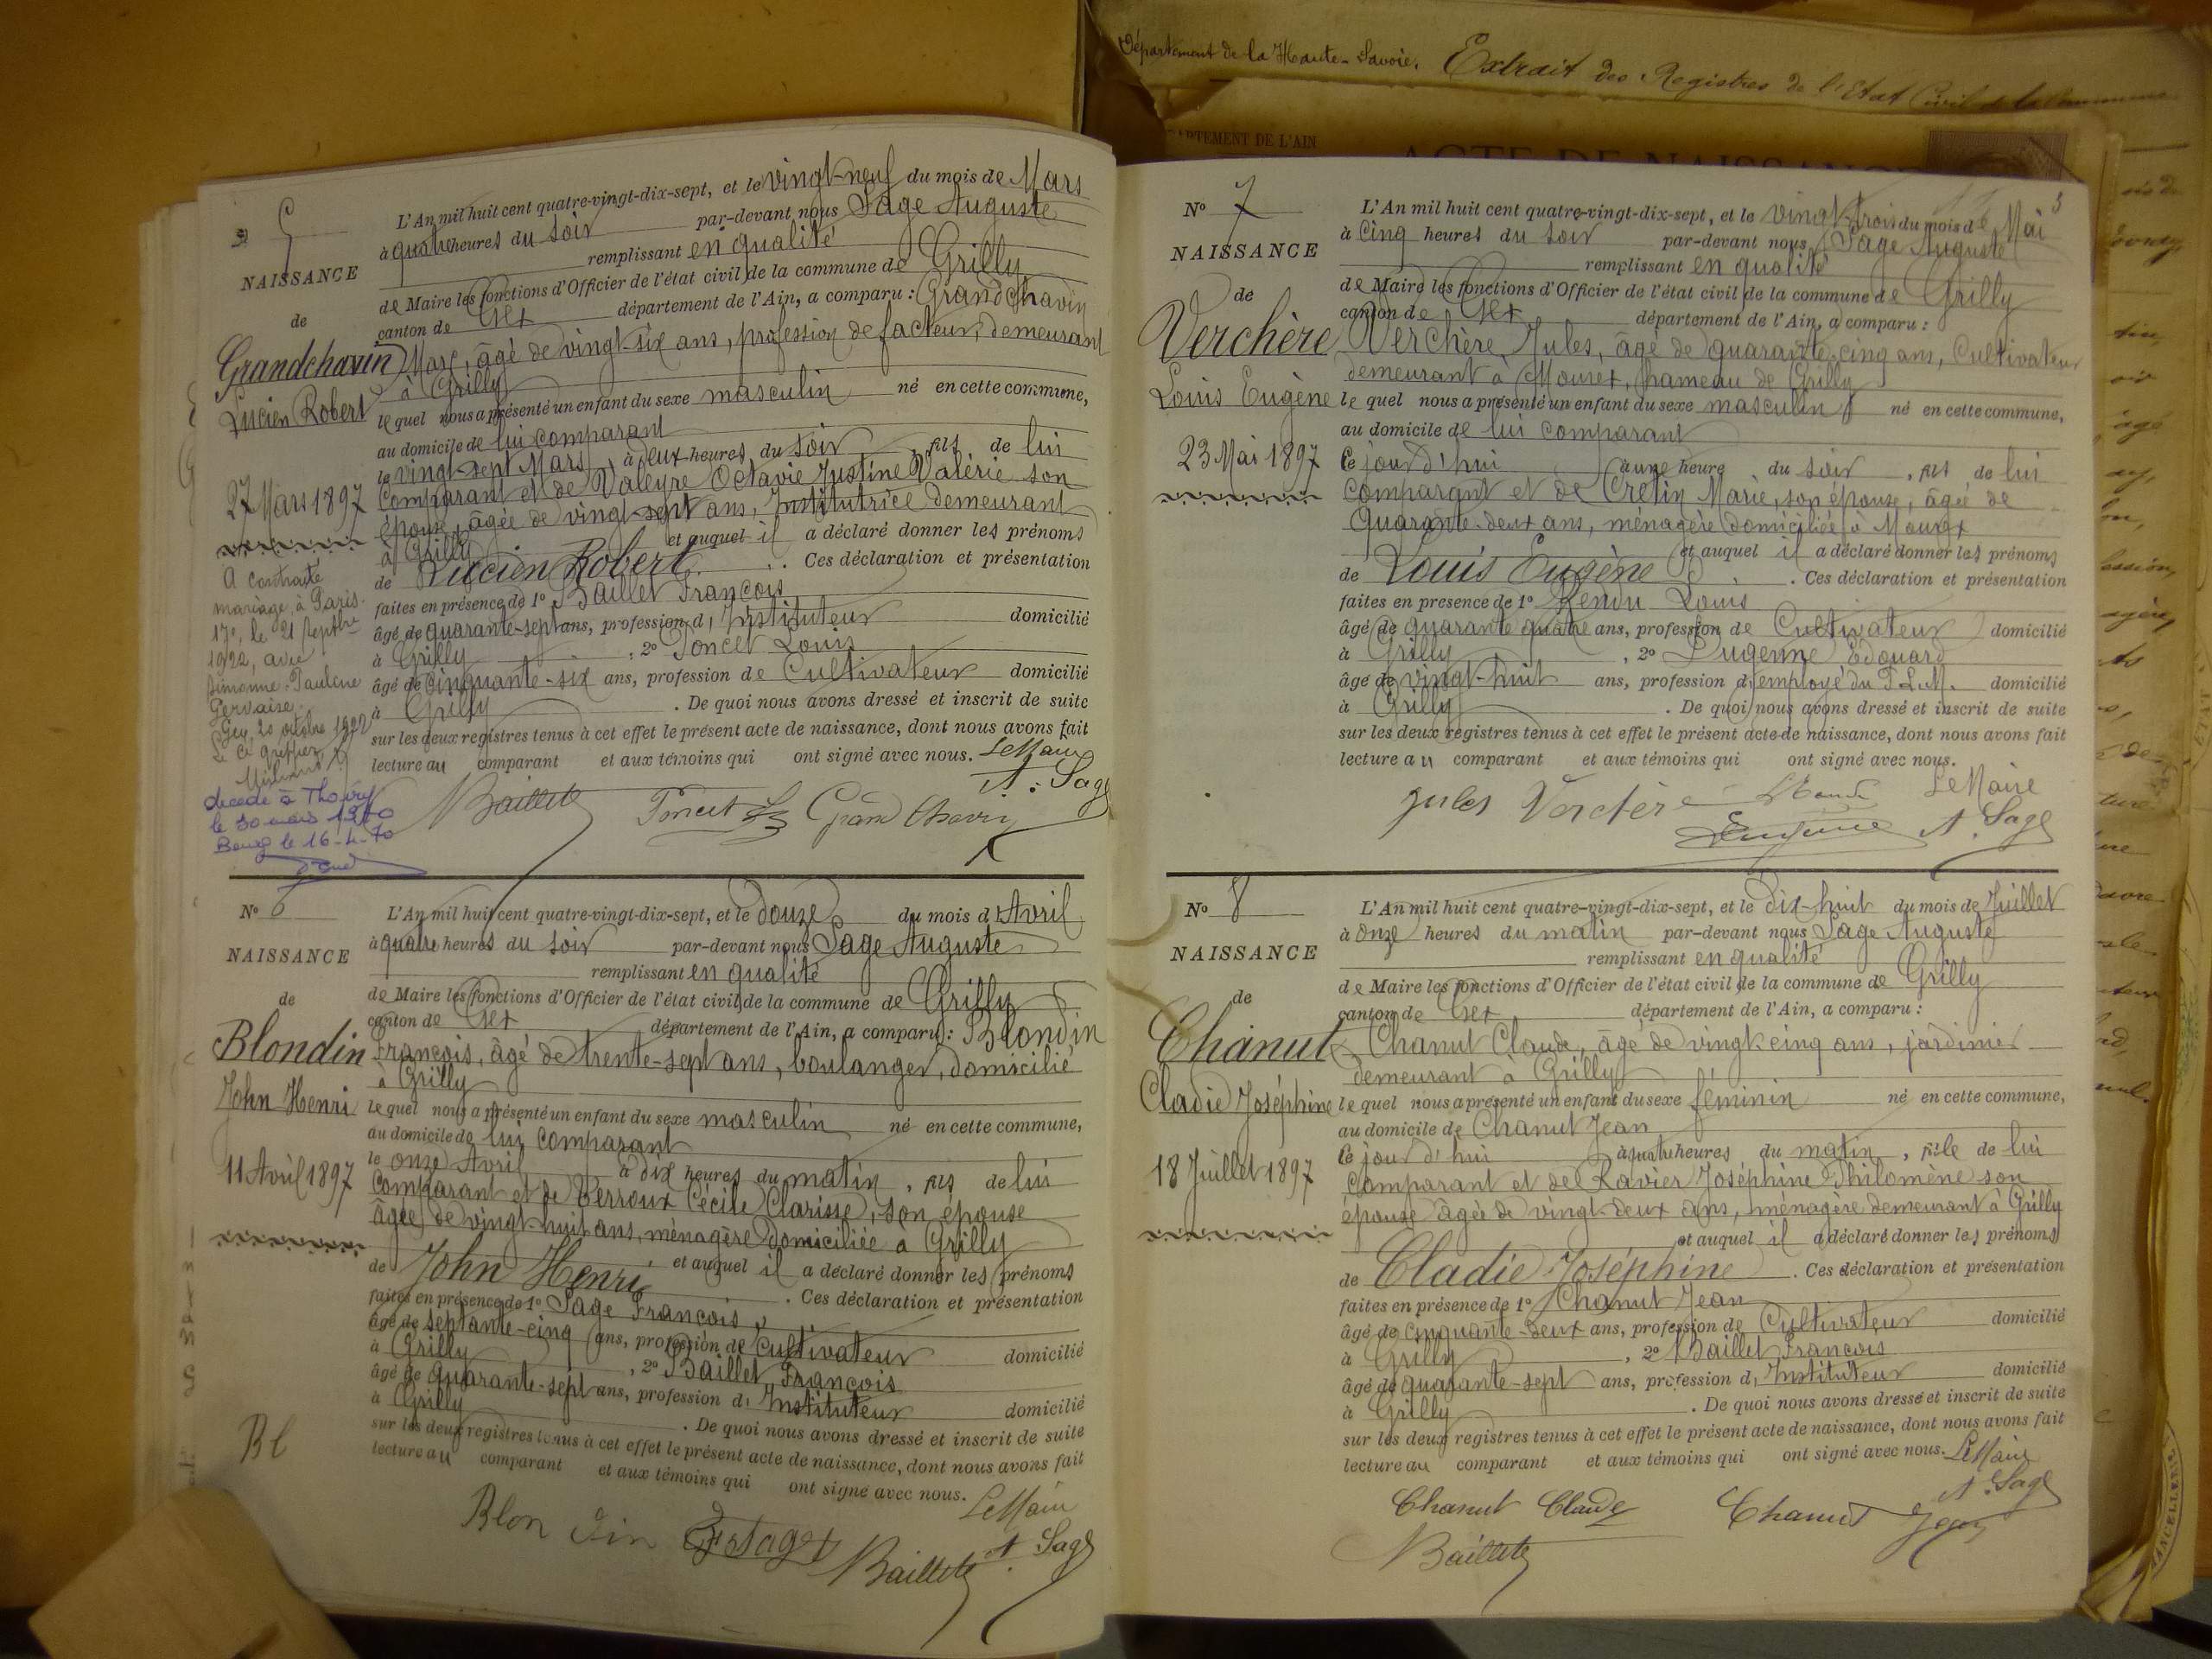 5
NAISSANCE
de
Grandchavin
Lucien Robert
27 Mars 1897
A contracté
mariage à Paris
17e, le 21 Septbre
1922, avec
Simonne Paulene
Gervaise.
Gex, 20 octobre 1922
Le Cs Greffier
décédé à Thoiry
le 30 mars 1970
Bourg le 16-4-70
L'An mil huit cent quatre-vingt-dix-sept, et le vingt-neuf du mois de Mars
à quatre heures du soir par-devant nous Sage Auguste
remplissant en qualité
de Maire les fonctions d'Officier de l'état civil de la commune de Grilly
canton de Gex département de l'Ain, a comparu : Grandchavin
Marc, âgé de vingt-six ans, profession de facteur, demeurant
à Grilly
lequel nous a présenté un enfant du sexe masculin né en cette commune,
au domicile de lui comparant
le vingt-sept Mars, à deux heures du soir, fils de lui
comparant et de Valeyre Octavie Justine Valérie son
épouse, âgée de vingt-sept ans, Institutrice demeurant
à Grilly et auquel il a déclaré donner les prénoms
de Lucien Robert . Ces déclaration et présentation
faites en présence de 1° Baillet François
âgé de quarante-sept ans, profession d'Instituteur domicilié
à Grilly , 2° Poncet Louis
âgé de cinquante-six ans, profession de Cultivateur domicilié
à Grilly . De quoi nous avons dressé et inscrit de suite
sur les deux registres tenus à cet effet le présent acte de naissance, dont nous avons fait
lecture au comparant et aux témoins qui ont signé avec nous. Le Maire
A. Sage
Baillet Poncet Ls Grand Chavin
N° 6
NAISSANCE
de
Blondin
John Henri
11 Avril 1897
Bl
L'An mil huit cent quatre-vingt-dix-sept, et le douze du mois d'Avril
à quatre heures du soir par-devant nous Sage Auguste
remplissant en qualité
de Maire les fonctions d'Officier de l'état civil de la commune de Grilly
canton de Gex département de l'Ain, a comparu : Blondin
François, âgé de trente-sept ans, boulanger, domicilié
à Grilly
lequel nous a présenté un enfant du sexe masculin né en cette commune,
au domicile de lui comparant
le onze Avril à dix heures du matin, fils de lui
comparant et de Perroux Cécile Clarisse, son épouse
âgée de vingt-huit ans, ménagère domiciliée à Grilly
et auquel il a déclaré donner les prénoms
de John Henri . Ces déclaration et présentation
faites en présence de 1° Sage François
âgé de septante-cinq ans, profession de cultivateur
à Grilly domicilié
, 2° Baillet François
âgé de quarante-sept ans, profession d'Instituteur
à Grilly domicilié
. De quoi nous avons dressé et inscrit de suite
sur les deux registres tenus à cet effet le présent acte de naissance, dont nous avons fait
lecture au comparant et aux témoins qui ont signé avec nous.
Le Maire
Blon din F Sage Baillet A. Sage
Département de la Haute-Savoie. Extrait des Registres de l'Etat Civil de la Commune
DÉPARTEMENT DE L'AIN
ACTE DE NAISSANCE
3
N° 7
NAISSANCE
de
Verchère
Louis Eugène
23 Mai 1897
L'An mil huit cent quatre-vingt-dix-sept, et le vingt-trois du mois de Mai
à cinq heures du soir par-devant nous Sage Auguste
remplissant en qualité
de Maire les fonctions d'Officier de l'état civil de la commune de Grilly
canton de Gex département de l'Ain, a comparu :
Verchère Jules, âgé de quarante-cinq ans, Cultivateur
demeurant à Mourex, hameau de Grilly
lequel nous a présenté un enfant du sexe masculin né en cette commune,
au domicile de lui comparant
ce jourd'hui à une heure du soir, fils de lui
comparant et de Cretin Marie, son épouse, âgée de
quarante-deux ans, ménagère domiciliée à Mourex
et auquel il a déclaré donner les prénoms
de Louis Eugène . Ces déclaration et présentation
faites en présence de 1° Rendu Louis
âgé de quarante quatre ans, profession de Cultivateur domicilié
à Grilly , 2° Dugenne Edouard
âgé de vingt-huit ans, profession d'employé du P.L.M. domicilié
à Grilly . De quoi nous avons dressé et inscrit de suite
sur les deux registres tenus à cet effet le présent acte de naissance, dont nous avons fait
lecture au comparant et aux témoins qui ont signé avec nous.
Jules Verchère Le Maire
A. Sage
N° 8
NAISSANCE
de
Chanut
Cladie Joséphine
18 Juillet 1897
L'An mil huit cent quatre-vingt-dix-sept, et le dix-huit du mois de Juillet
à onze heures du matin par-devant nous Sage Auguste
remplissant en qualité
de Maire les fonctions d'Officier de l'état civil de la commune de Grilly
canton de Gex département de l'Ain, a comparu :
Chanut Claude, âgé de vingt-cinq ans, jardinier
demeurant à Grilly
lequel nous a présenté un enfant du sexe féminin né en cette commune,
au domicile de Chanut Jean
ce jour d'hui à quatre heures du matin, fille de lui
comparant et de Ravier Joséphine Philomène son
épouse âgée de vingt-deux ans, ménagère demeurant à Grilly
et auquel il a déclaré donner les prénoms
de Cladie Joséphine . Ces déclaration et présentation
faites en présence de 1° Chanut Jean
âgé de cinquante-deux ans, profession de Cultivateur domicilié
à Grilly , 2° Baillet François
âgé de quarante-sept ans, profession d'Instituteur domicilié
à Grilly . De quoi nous avons dressé et inscrit de suite
sur les deux registres tenus à cet effet le présent acte de naissance, dont nous avons fait
lecture au comparant et aux témoins qui ont signé avec nous. Le Maire
A. Sage
Chanut Claude Chanut Jean
Baillet